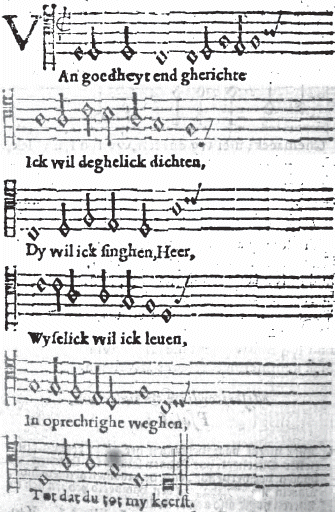 VAn goedheyt end gherichte
Ick wil deghelick dichten,
Dy wil ick singhen, Heer,
Wyselick wil ick leuen,
In oprechtighe weghen,
Tot dat du tot my keerst.